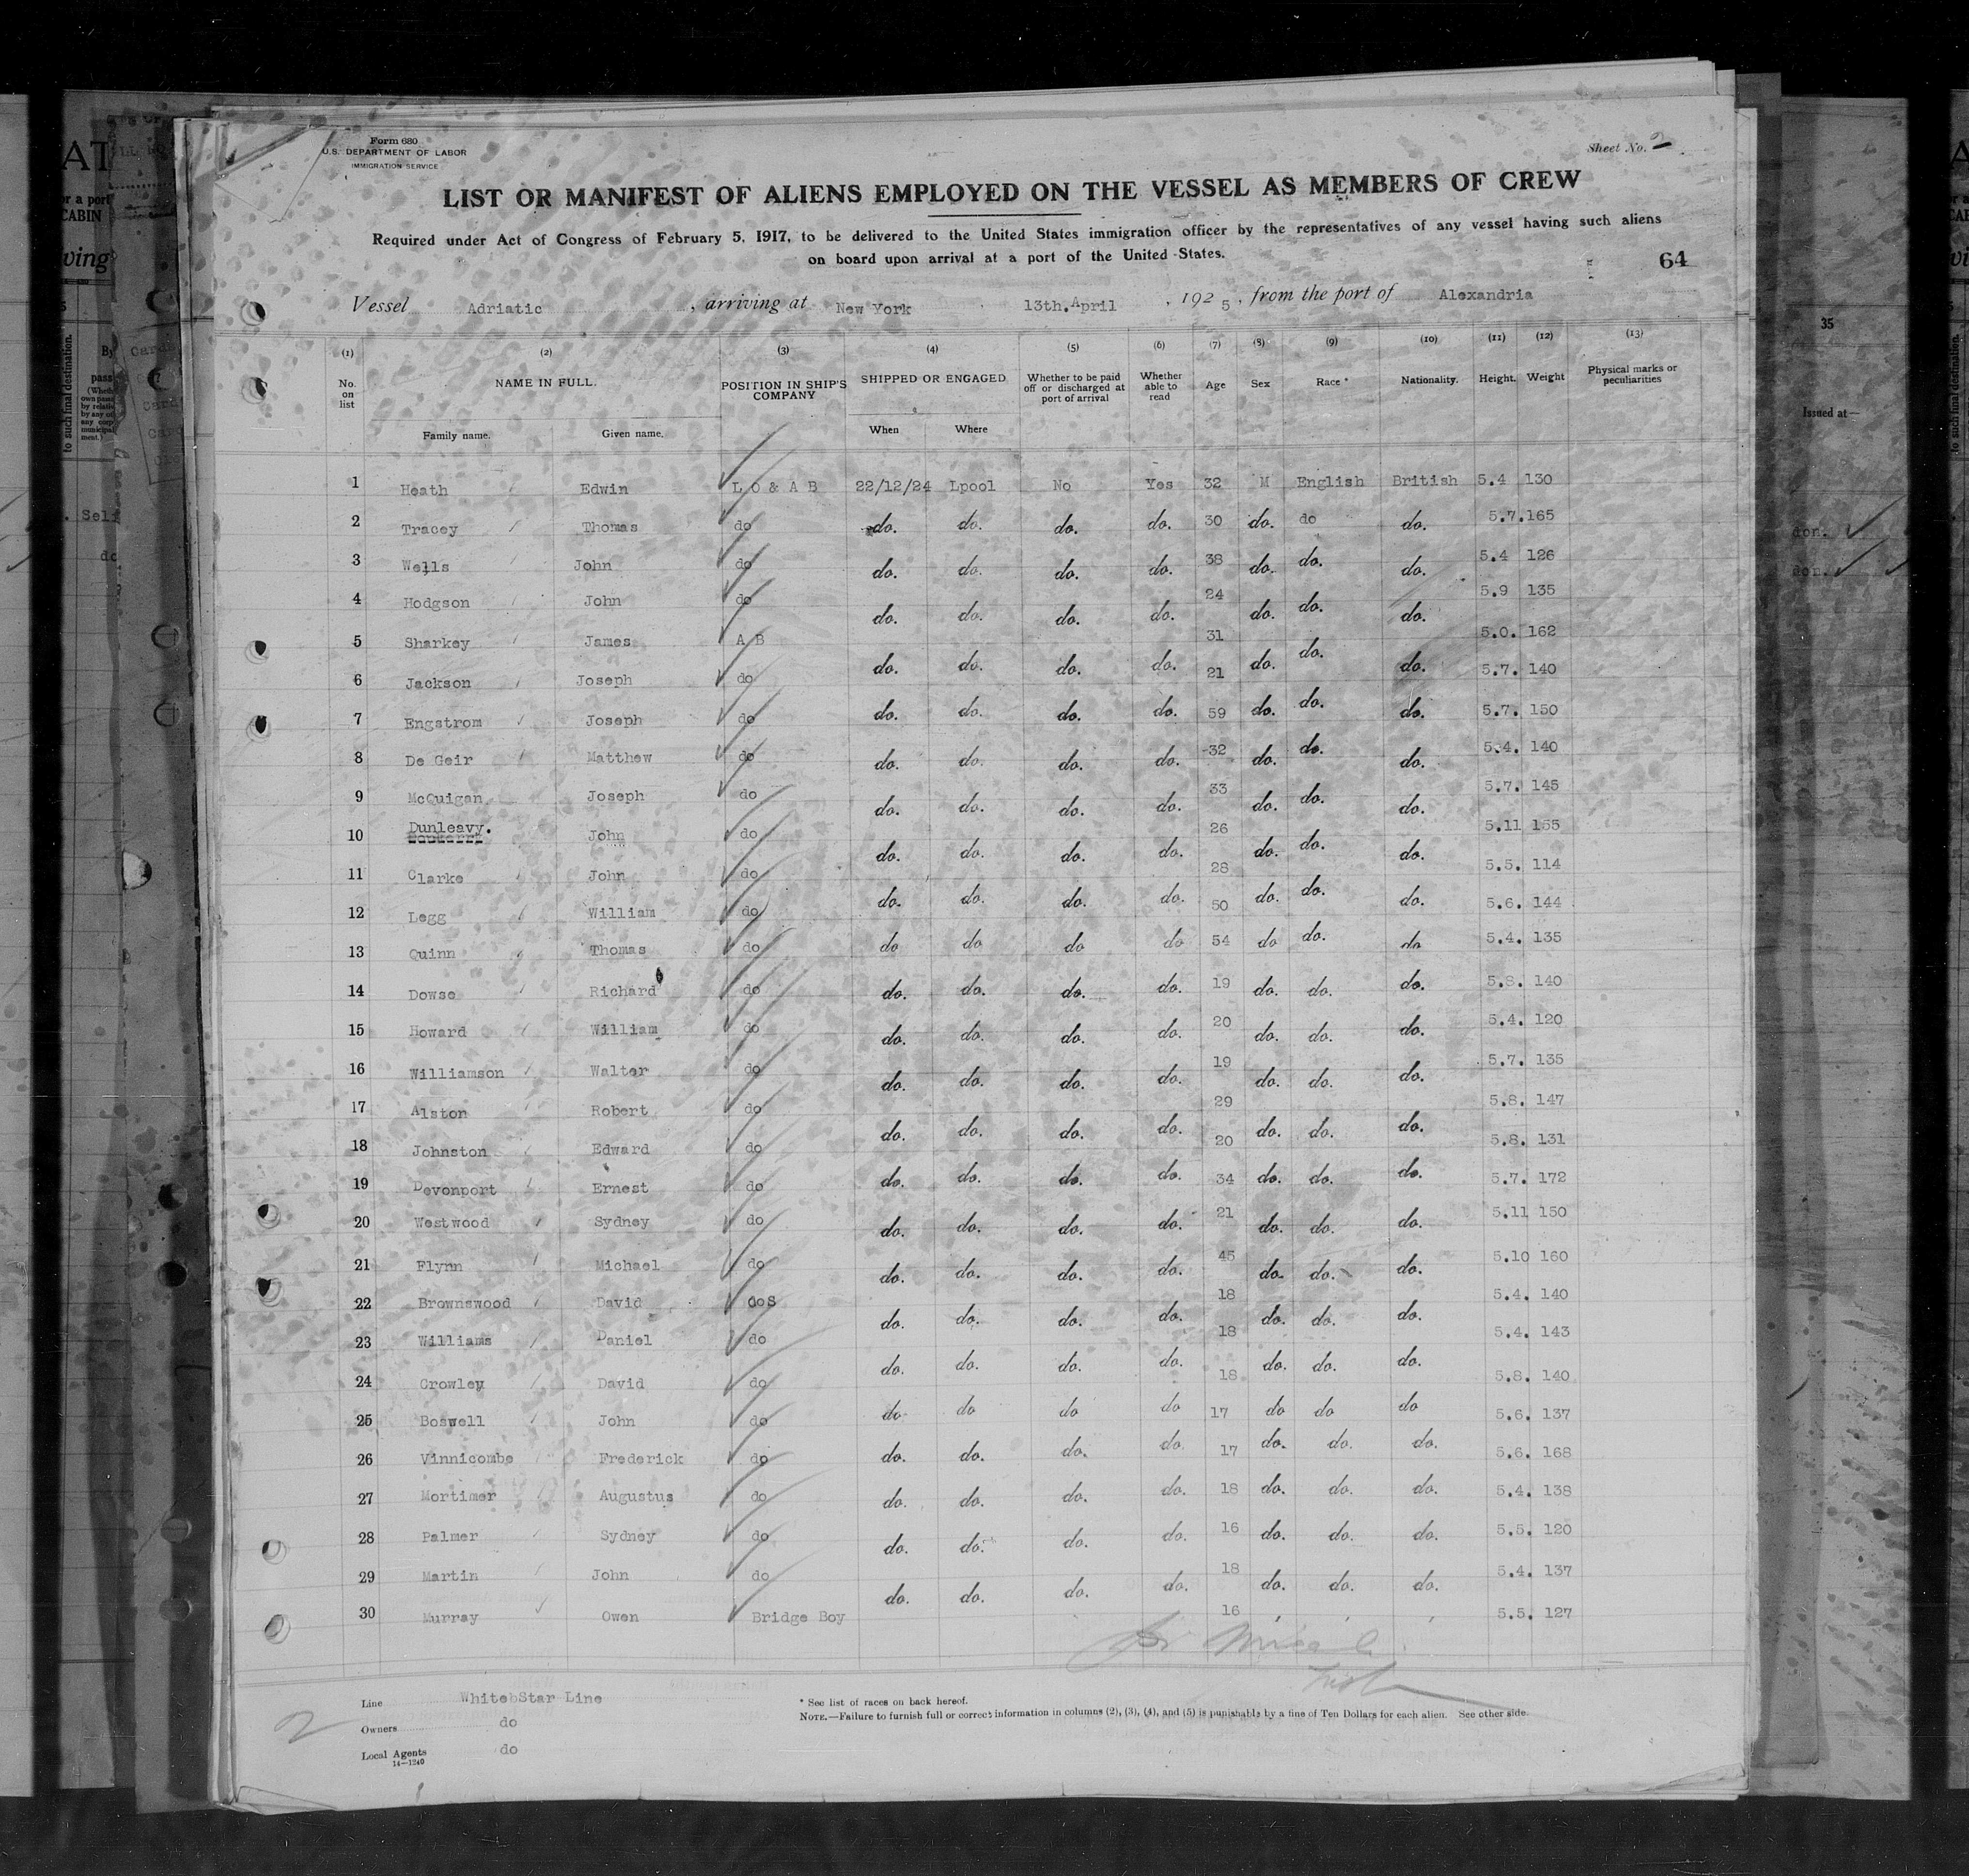 Form 680
U.S. DEPARTMENT OF LABOR
IMMIGRATION SERVICE
Sheet No. 2
LIST OR MANIFEST OF ALIENS EMPLOYED ON THE VESSEL AS MEMBERS OF CREW
Required under Act of Congress of February 5, 1917, to be delivered to the United States immigration officer by the representatives of any vessel having such aliens
on board upon arrival at a port of the United States.
64
Vessel Adriatic, arriving at New York 13th. April, 1925, from the port of Alexandria
(1) (2) (3) (4) (5) (6) (7) (8) (9) (10) (11) (12) (13)
No. on list NAME IN FULL. POSITION IN SHIP'S COMPANY SHIPPED OR ENGAGED Whether to be paid off or discharged at port of arrival Whether able to read Age Sex Race * Nationality. Height. Weight Physical marks or peculiarities
Family name. Given name. When Where
1 Heath Edwin L O & A B 22/12/24 Lpool No Yes 32 M English British 5.4 130
2 Tracey Thomas do do. do. do. do. 30 do. do do. 5.7. 165
3 Wells John do do. do. do. do. 38 do. do. do. 5.4 126
4 Hodgson John do do. do. do. do. 24 do. do. do. 5.9 135
5 Sharkey James A B do. do. do. do. 31 do. do. do. 5.0. 162
6 Jackson Joseph do do. do. do. do. 21 do. do. do. 5.7. 140
7 Engstrom Joseph do do. do. do. do. 59 do. do. do. 5.7. 150
8 De Geir Matthew do do. do. do. do. 32 do. do. do. 5.4. 140
9 McQuigan Joseph do do. do. do. do. 33 do. do. do. 5.7. 145
10 Dunleavy. John do do. do. do. do. 26 do. do. do. 5.11 155
11 Clarke John do do. do. do. do. 28 do. do. do. 5.5. 114
12 Legg William do 50 5.6. 144
13 Quinn Thomas do do do do do 54 do do. do 5.4. 135
14 Dowse Richard do do. do. do. do. 19 do. do. do. 5.8. 140
15 Howard William do do. do. do. do. 20 do. do. do. 5.4. 120
16 Williamson Walter do do. do. do. do. 19 do. do. do. 5.7. 135
17 Alston Robert do do. do. do. do. 29 do. do. do. 5.8. 147
18 Johnston Edward do 20 5.8. 131
19 Devonport Ernest do do. do. do. do. 34 do. do. do. 5.7. 172
20 Westwood Sydney do do. do. do. do. 21 do. do. do. 5.11 150
21 Flynn Michael do do. do. do. do. 45 do. do. do. 5.10 160
22 Brownswood David doS do. do. do. do. 18 do. do. do. 5.4. 140
23 Williams Daniel do do. do. do. do. 18 do. do. do. 5.4. 143
24 Crowley David do 18 5.8. 140
25 Boswell John do do do do do 17 do do do 5.6. 137
26 Vinnicombe Frederick do do. do. do. do. 17 do. do. do. 5.6. 168
27 Mortimer Augustus do do. do. do. do. 18 do. do. do. 5.4. 138
28 Palmer Sydney do do. do. do. do. 16 do. do. do. 5.5. 120
29 Martin John do do. do. do. do. 18 do. do. do. 5.4. 137
30 Murray Owen Bridge Boy 16 5.5. 127
Line White Star Line
Owners do
Local Agents do
14—1240
* See list of races on back hereof.
NOTE.—Failure to furnish full or correct information in columns (2), (3), (4), and (5) is punishable by a fine of Ten Dollars for each alien. See other side.
2
35
Issued at—